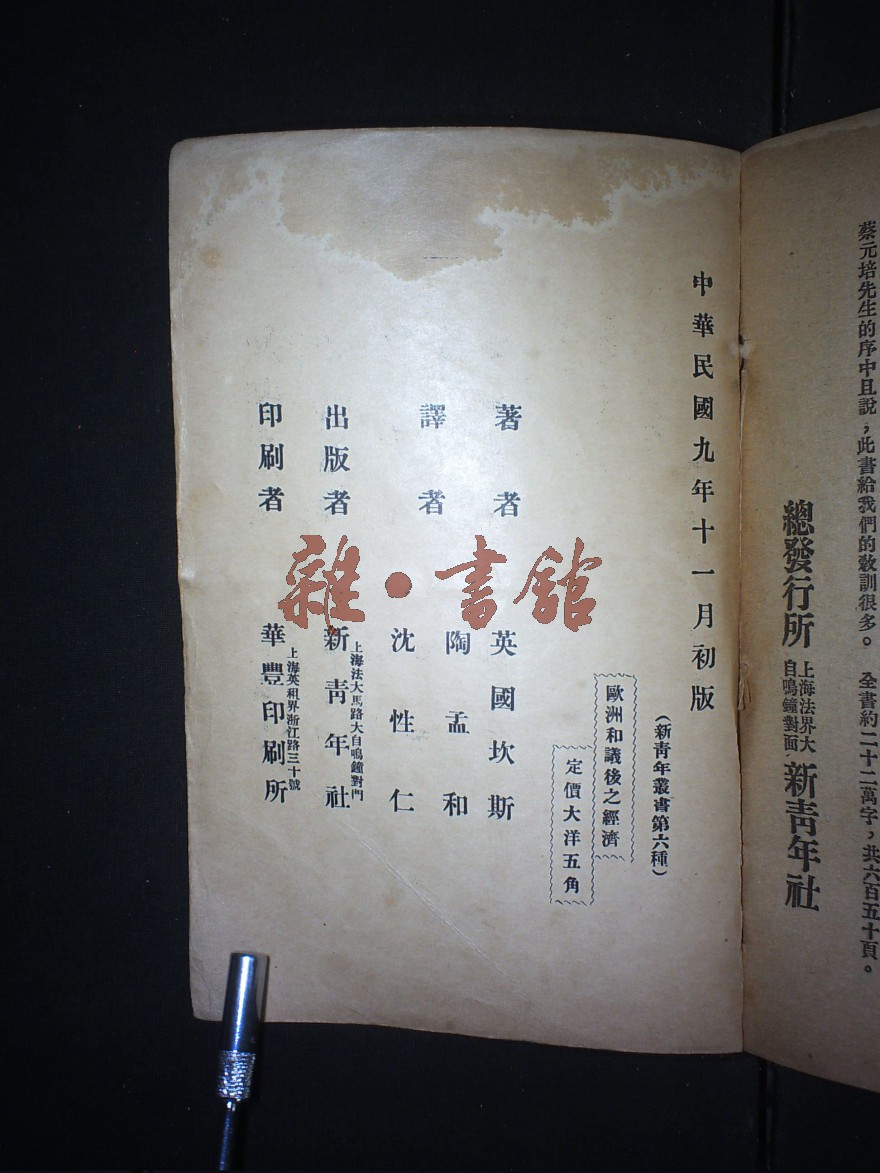 蔡元培先生的序中且說，此書給我們的敎訓很多。　全書約二十二萬字，共六百五十頁。
總發行所　上海法界大自鳴鐘對面　新靑年社
中華民國九年十一月初版
（新靑年叢書第六種）
歐洲和議後之經濟
定價大洋五角
著者　英國坎斯
譯者　陶孟和
沈性仁
上海法大馬路大自鳴鐘對門
出版者　新靑年社
上海英租界浙江路三十號
印刷者　華豐印刷所
雜·書館